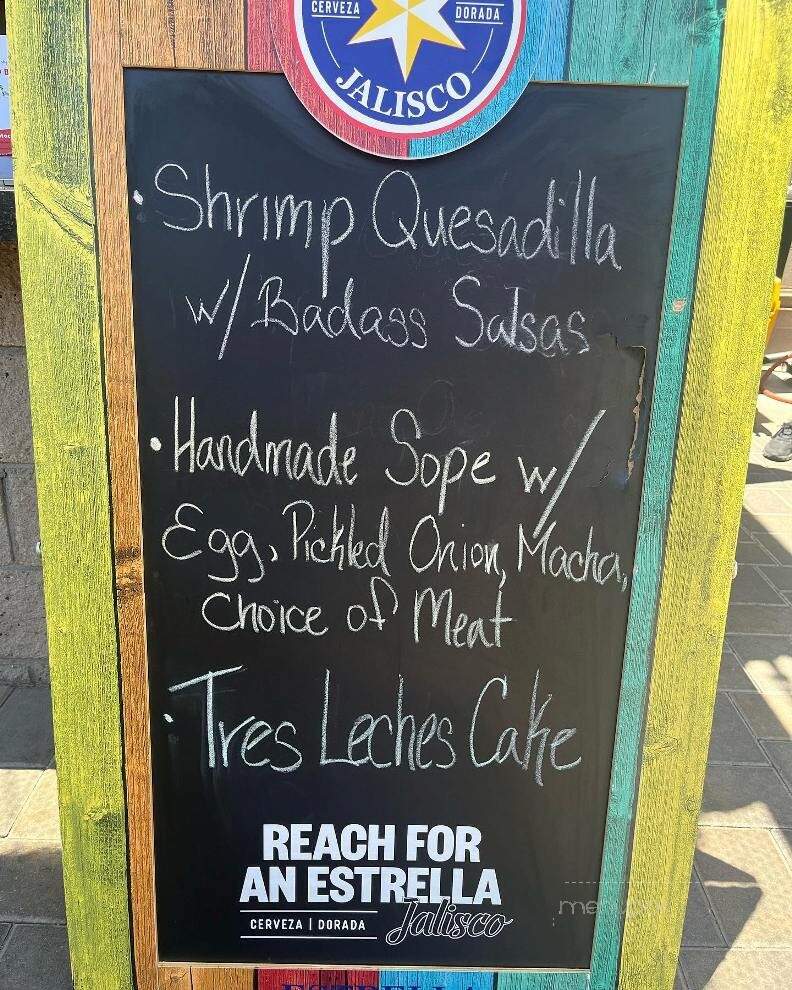 CERVEZA DORADA
JALISCO
· Shrimp Quesadilla
w/ Badass Salsas
· Handmade Sope w/
Egg, Pickled Onion, Macha,
Choice of Meat
· Tres Leches Cake
REACH FOR
AN ESTRELLA
Jalisco
CERVEZA | DORADA